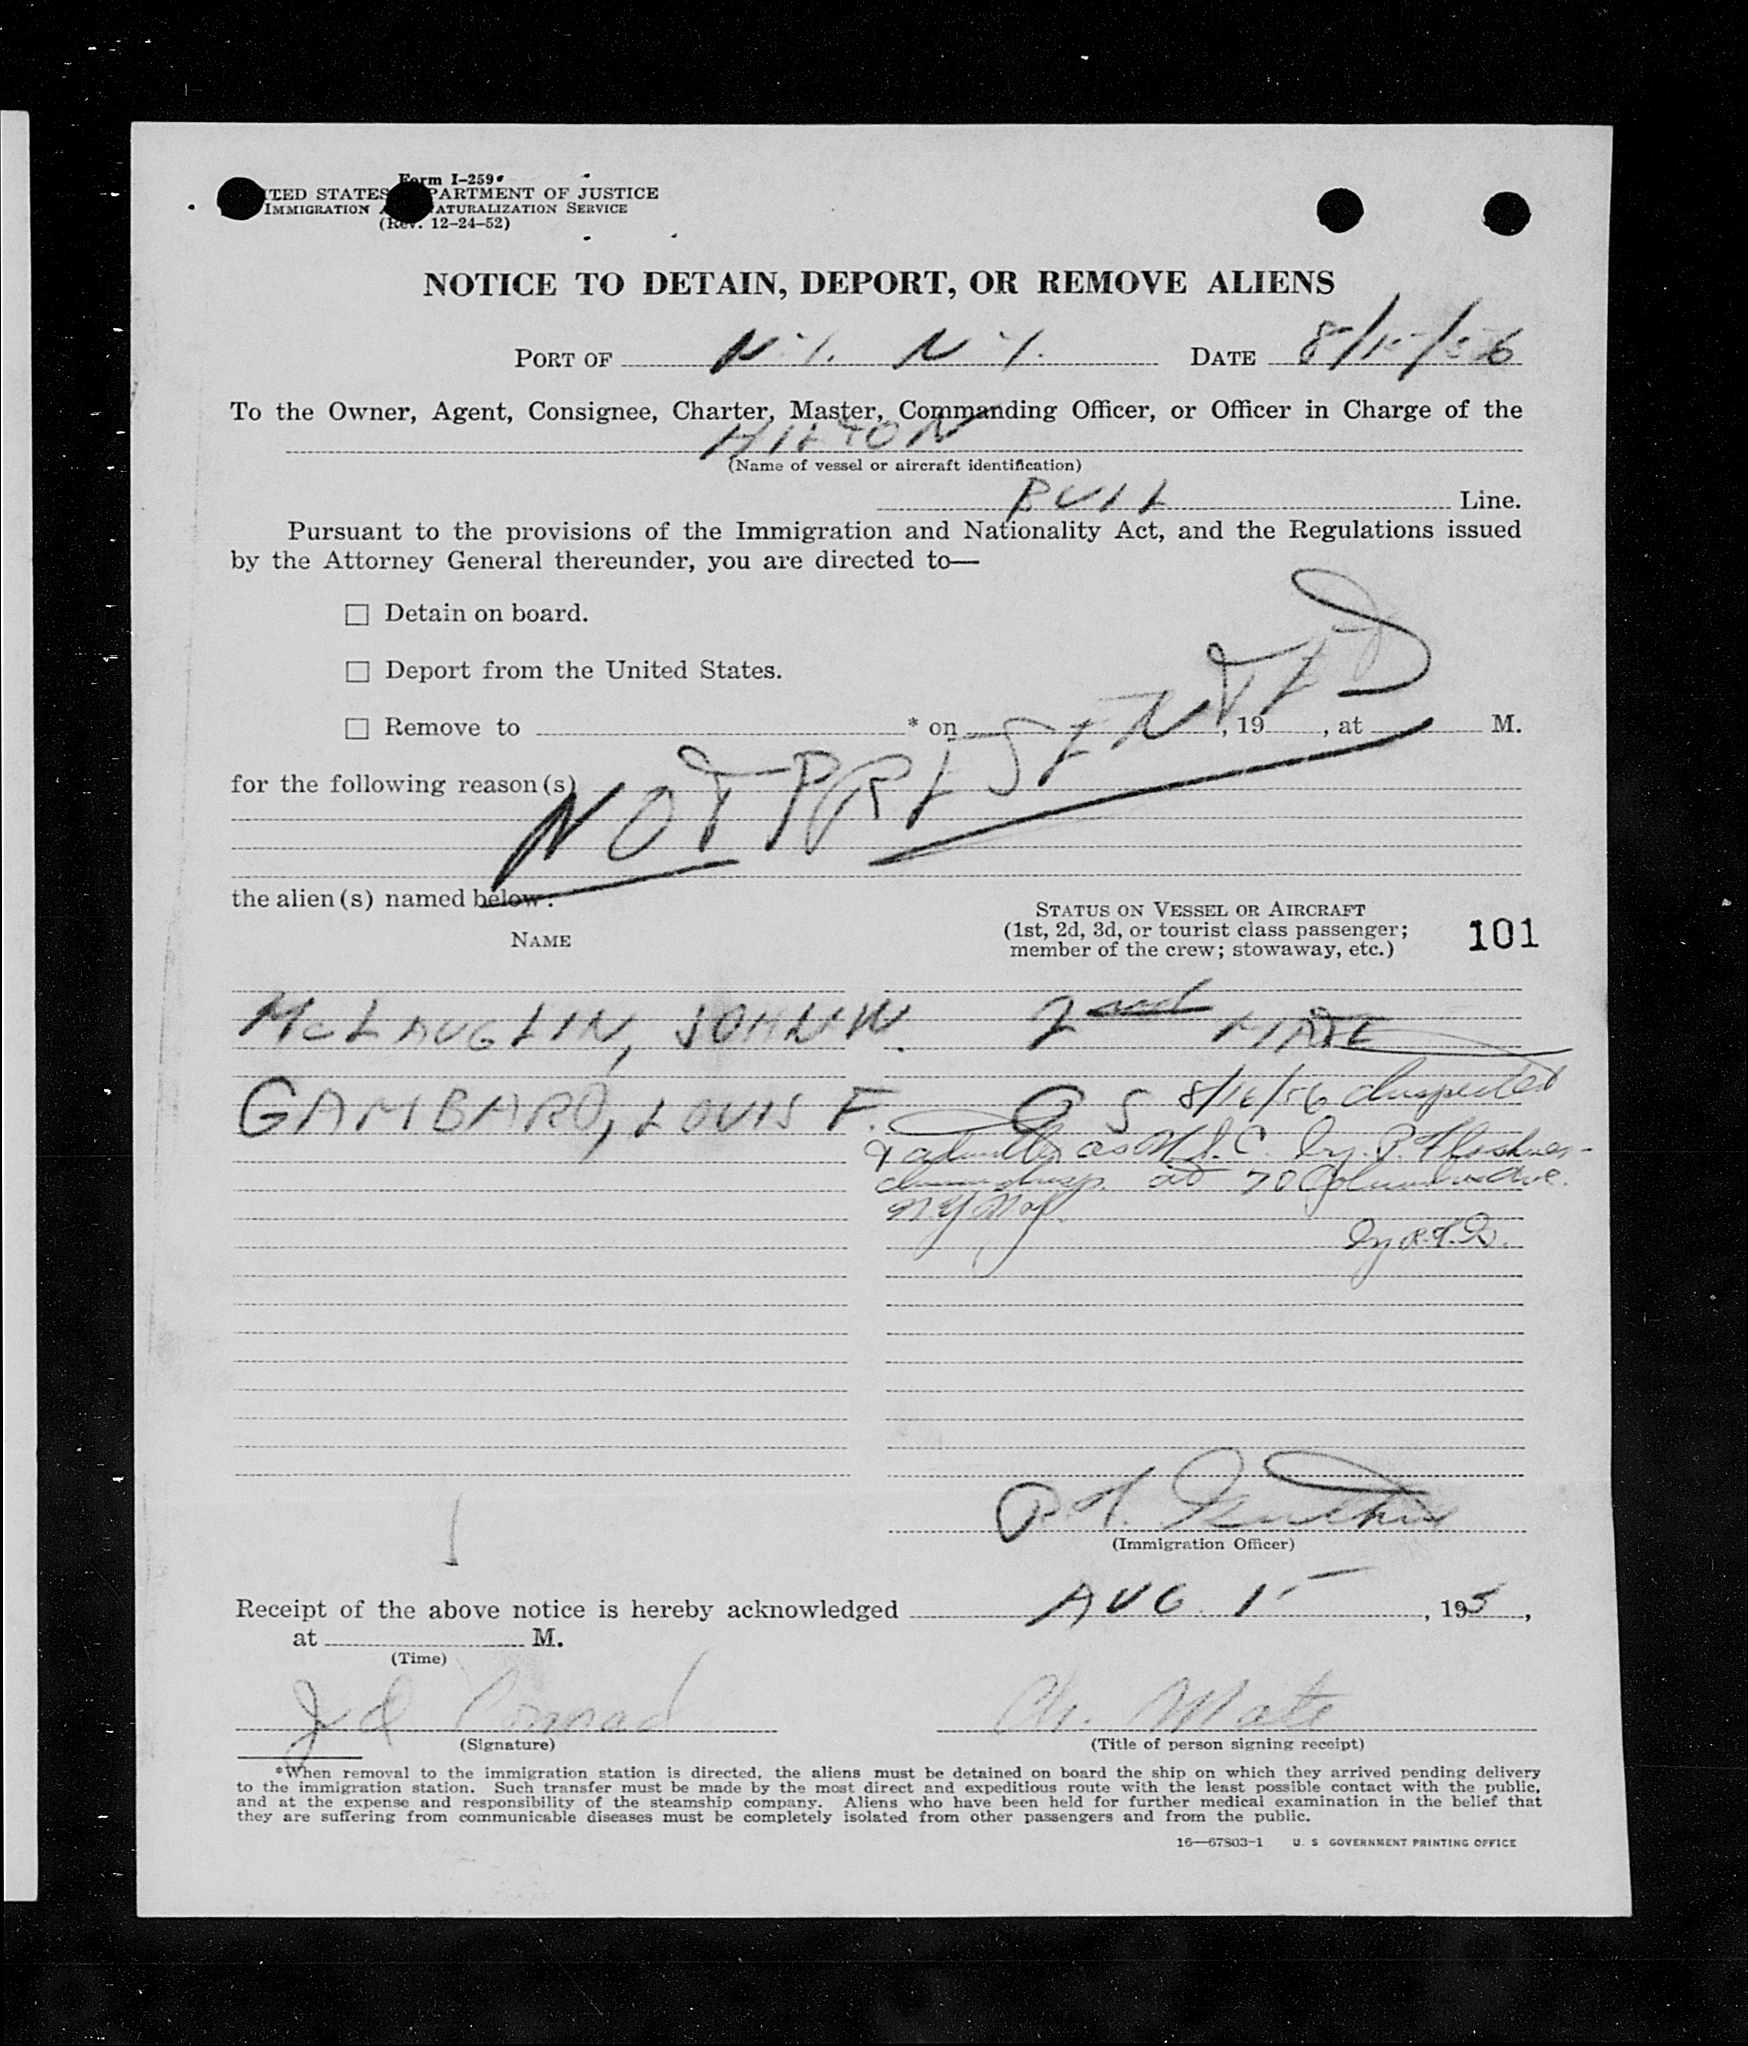 Form I-259
ITED STATES PARTMENT OF JUSTICE
IMMIGRATION ATURALIZATION SERVICE
(Rev. 12-24-52)
NOTICE TO DETAIN, DEPORT, OR REMOVE ALIENS
PORT OF N.Y. N.Y. DATE 8/15/56
To the Owner, Agent, Consignee, Charter, Master, Commanding Officer, or Officer in Charge of the
HILTON
(Name of vessel or aircraft identification)
BULL Line.
Pursuant to the provisions of the Immigration and Nationality Act, and the Regulations issued
by the Attorney General thereunder, you are directed to—
☐ Detain on board.
☐ Deport from the United States.
☐ Remove to * on , 19 , at M.
for the following reason(s)
NOT PRESENTED
the alien(s) named below:
NAME
STATUS ON VESSEL OR AIRCRAFT
(1st, 2d, 3d, or tourist class passenger;
member of the crew; stowaway, etc.)
101
McLAUGLIN, JOHN W. 2nd MATE
GAMBARO, LOUIS F. OS 8/16/56 Inspected
at 70 Columbus Ave.
N.Y.
P.H.
(Immigration Officer)
Receipt of the above notice is hereby acknowledged AUG 15 , 195 ,
at M.
(Time)
J Conrad Ch. Mate
(Signature) (Title of person signing receipt)
*When removal to the immigration station is directed, the aliens must be detained on board the ship on which they arrived pending delivery
to the immigration station. Such transfer must be made by the most direct and expeditious route with the least possible contact with the public,
and at the expense and responsibility of the steamship company. Aliens who have been held for further medical examination in the belief that
they are suffering from communicable diseases must be completely isolated from other passengers and from the public.
16—67803-1 U. S GOVERNMENT PRINTING OFFICE